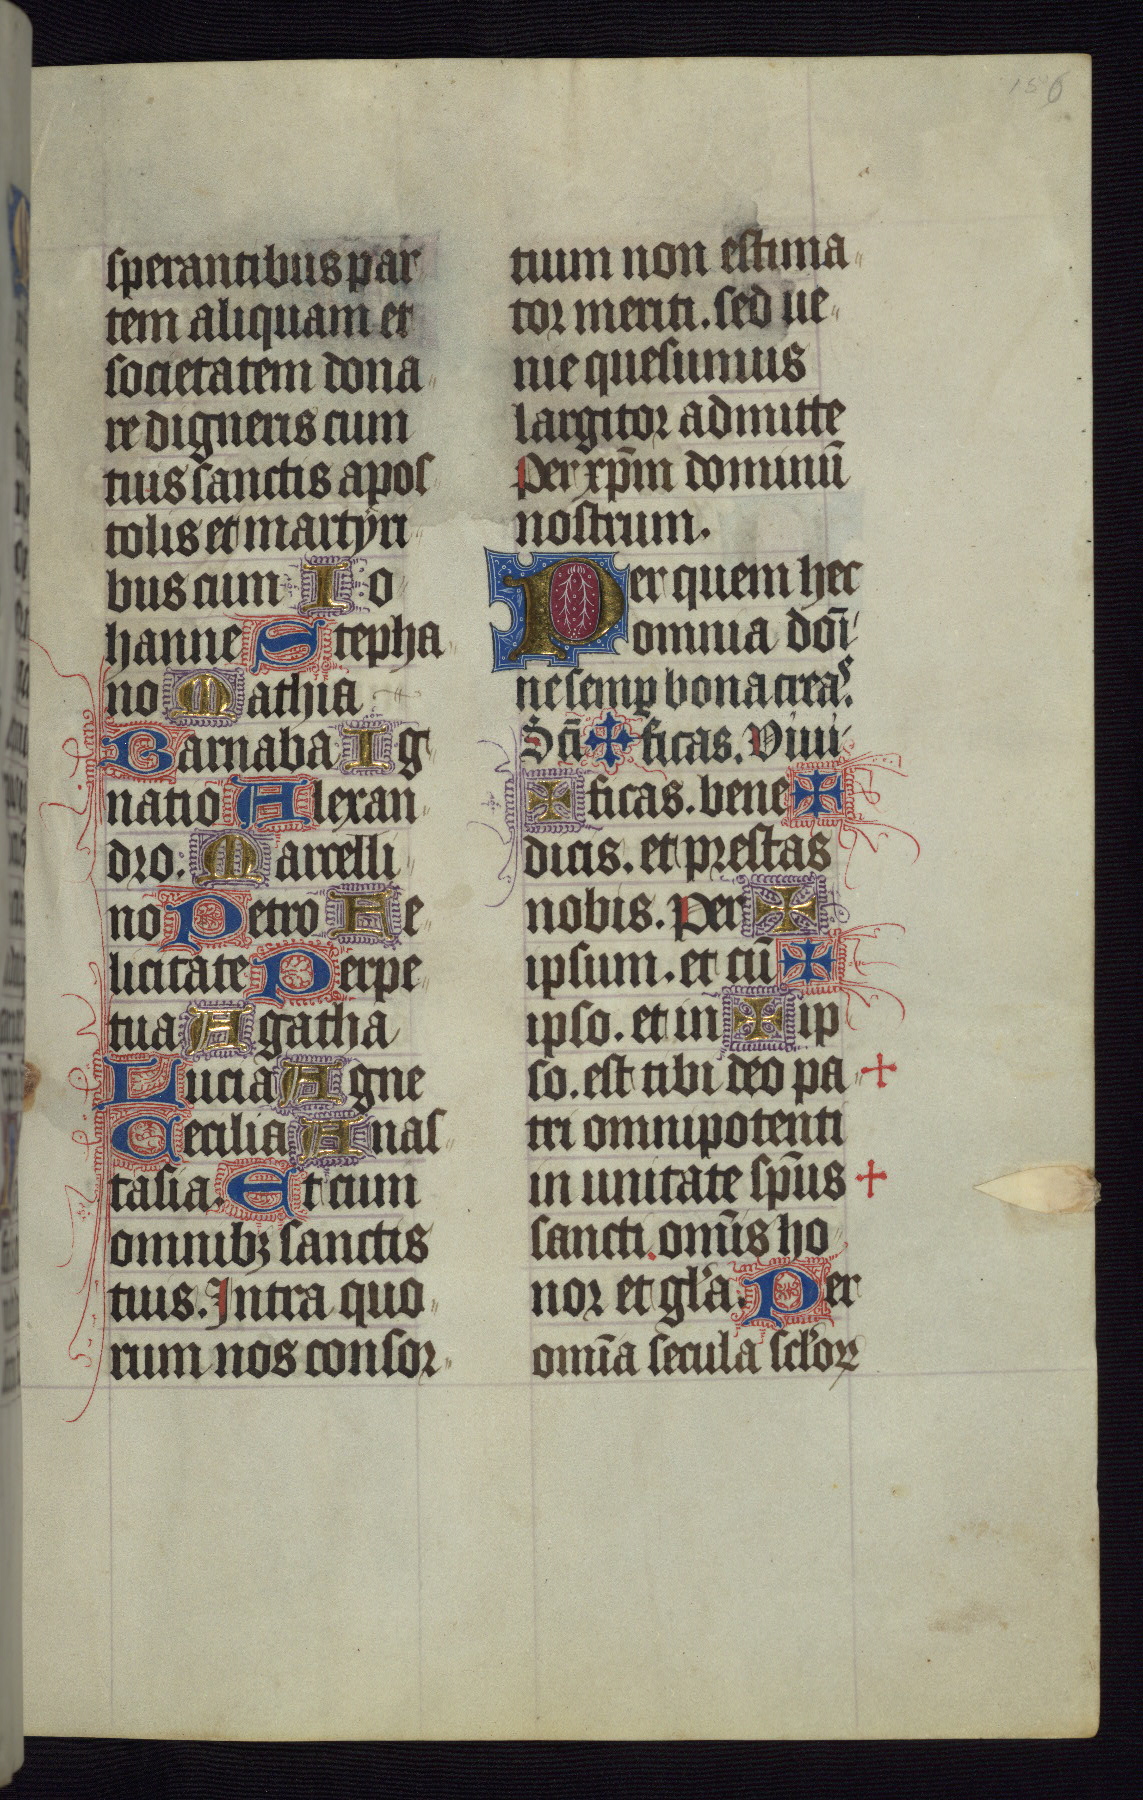 156
sperantibus par
tem aliquam et
societatem dona
re digneris cum
tuis sanctis apos
tolis et martyri
bus cum Io
hanne Stepha
no Mathia
Barnaba Ig
natio Alexan
dro. Marcelli
no Petro Fe
licitate Perpe
tua Agatha
Lucia Agne
Cecilia Anas
tasia. Et cum
omnibꝫ sanctis
tuis. Intra quo
rum nos consor
tium non estima
tor meriti. sed ue
nie quesumus
largitor admitte
Per xp̄m dominū
nostrum.
Per quem hec
omnia dn̄i
ne semꝑ bona creaˢ.
Scī ✠ ficas. Viui
✠ ficas. bene ✠
dicis. et prestas
nobis. Per ✠
ipsum. et cū ✠
ipso. et in ✠ ip
so. est tibi deo pa +
tri omnipotenti
in unitate sp̄us +
sancti. omīs ho
nor et gl'a. Per
omīa secula scl'oꝝ